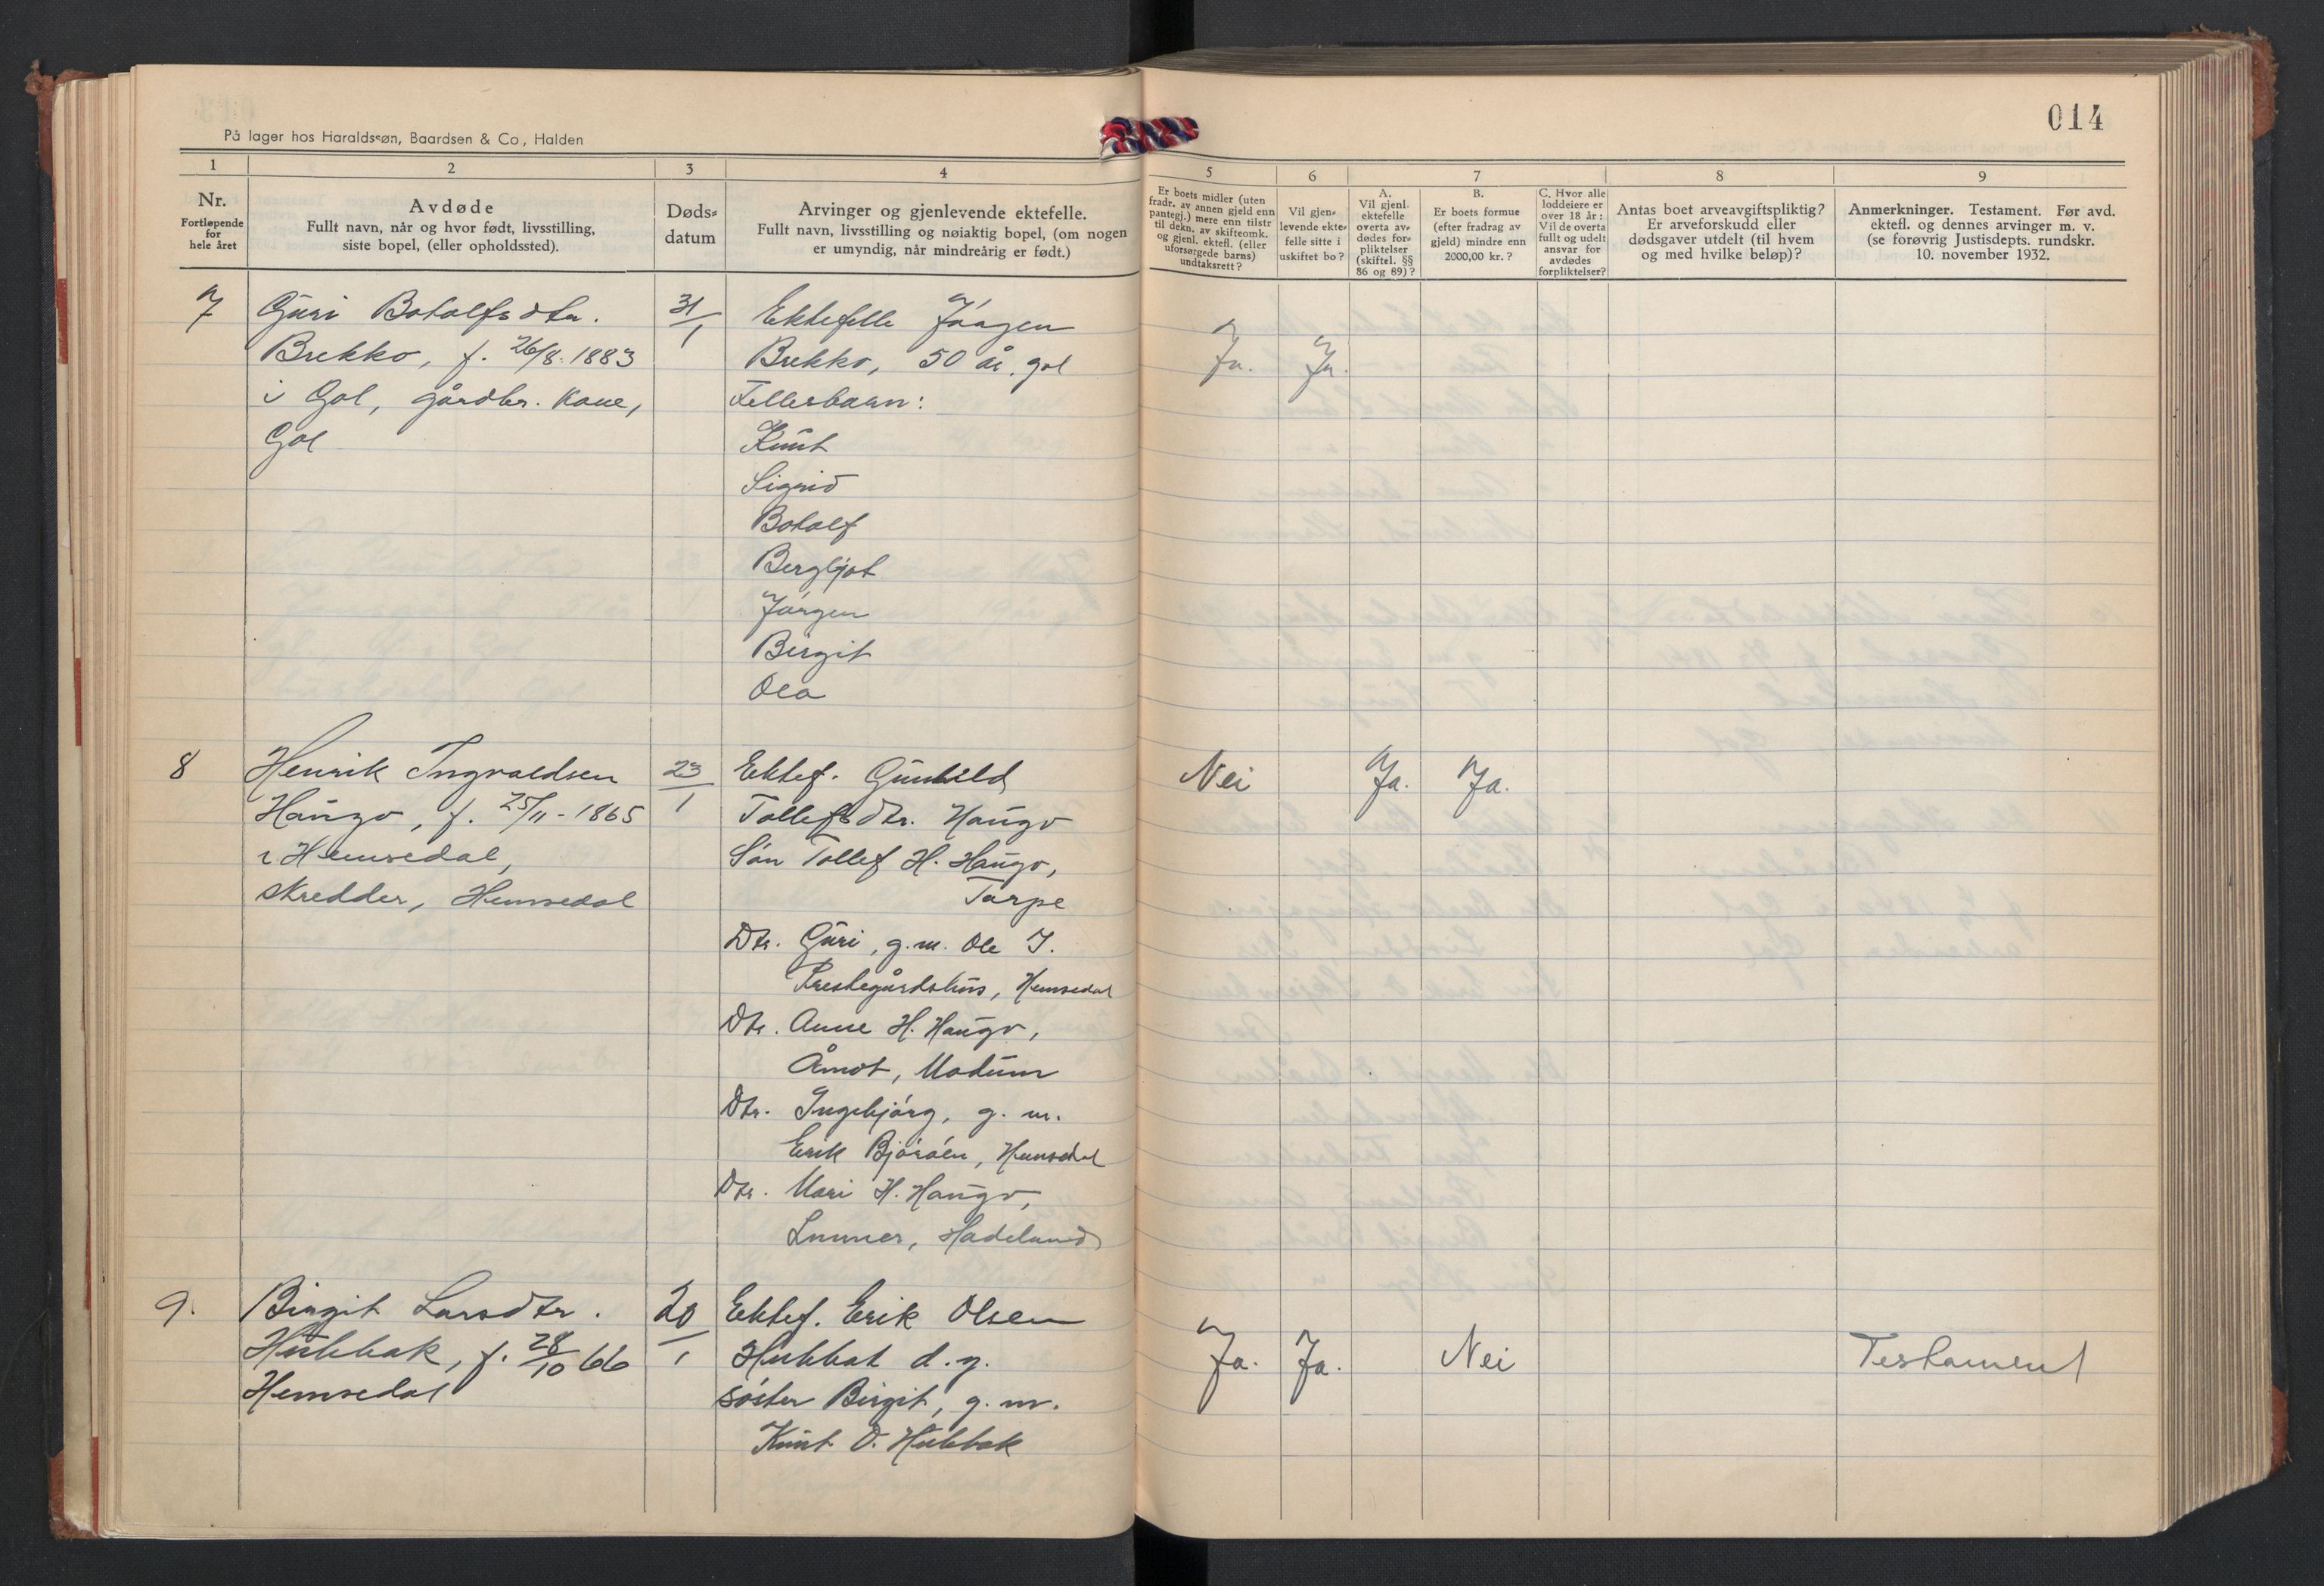 014
På lager hos Haraldssøn, Baardsen & Co, Halden
1 2 3 4 5 6 7 8 9
Nr.
Fortløpende
for
hele året
Avdøde
Fullt navn, når og hvor født, livsstilling,
siste bopel, (eller opholdssted).
Døds-
datum
Arvinger og gjenlevende ektefelle.
Fullt navn, livsstilling og nøiaktig bopel, (om nogen
er umyndig, når mindreårig er født.)
Er boets midler (uten
fradr. av annen gjeld enn
pantegj.) mere enn tilstr
til dekn. av skifteomk.
og gjenl. ektefl. (eller
uforsørgede barns)
undtaksrett?
Vil gjen-
levende ekte-
felle sitte i
uskiftet bo?
A.
Vil gjenl.
ektefelle
overta av-
dødes for-
pliktelser
(skiftel. §§
86 og 89)?
B.
Er boets formue
(efter fradrag av
gjeld) mindre enn
2000,00 kr.?
C. Hvor alle
loddeiere er
over 18 år:
Vil de overta
fullt og udelt
ansvar for
avdødes
forpliktelser?
Antas boet arveavgiftspliktig?
Er arveforskudd eller
dødsgaver utdelt (til hvem
og med hvilke beløp)?
Anmerkninger. Testament. Før avd.
ektefl. og dennes arvinger m. v.
(se forøvrig Justisdepts. rundskr.
10. november 1932.
7 Guri Botolfsdtr. 31/1 Ektefelle Jörgen
Brekko, f. 26/8. 1883 Brekko, 50 år, Gol Ja. Ja.
i Gol, gårdbr. kone, Fellesbarn:
Gol Knut
Sigrid
Botolf
Bergljot
Jörgen
Birgit
Ola
8 Henrik Ingvaldsen 23/1 Ektef. Gunhild Nei Ja. Ja.
Haugo, f. 25/11-1865 Tollefsdtr. Haugo
i Hemsedal, Sön Tollef H. Haugo,
skredder, Hemsedal Torpe
Dtr. Guri, g.m. Ole J.
Prestegårdshus, Hemsedal
Dtr. Anne H. Haugo,
Åmot, Modum
Dtr. Ingebjörg, g. m.
Erik Björöen, Hemsedal
Dtr. Mari H. Haugo,
Lunner, Hadeland
9. Birgit Larsdtr. 20/1 Ektef. Erik Olsen
Hulbak, f. 28/10 66 Hulbak d.y. Ja. Ja. Nei Testament
Hemsedal söster Birgit, g. m.
Knut O. Hulbak